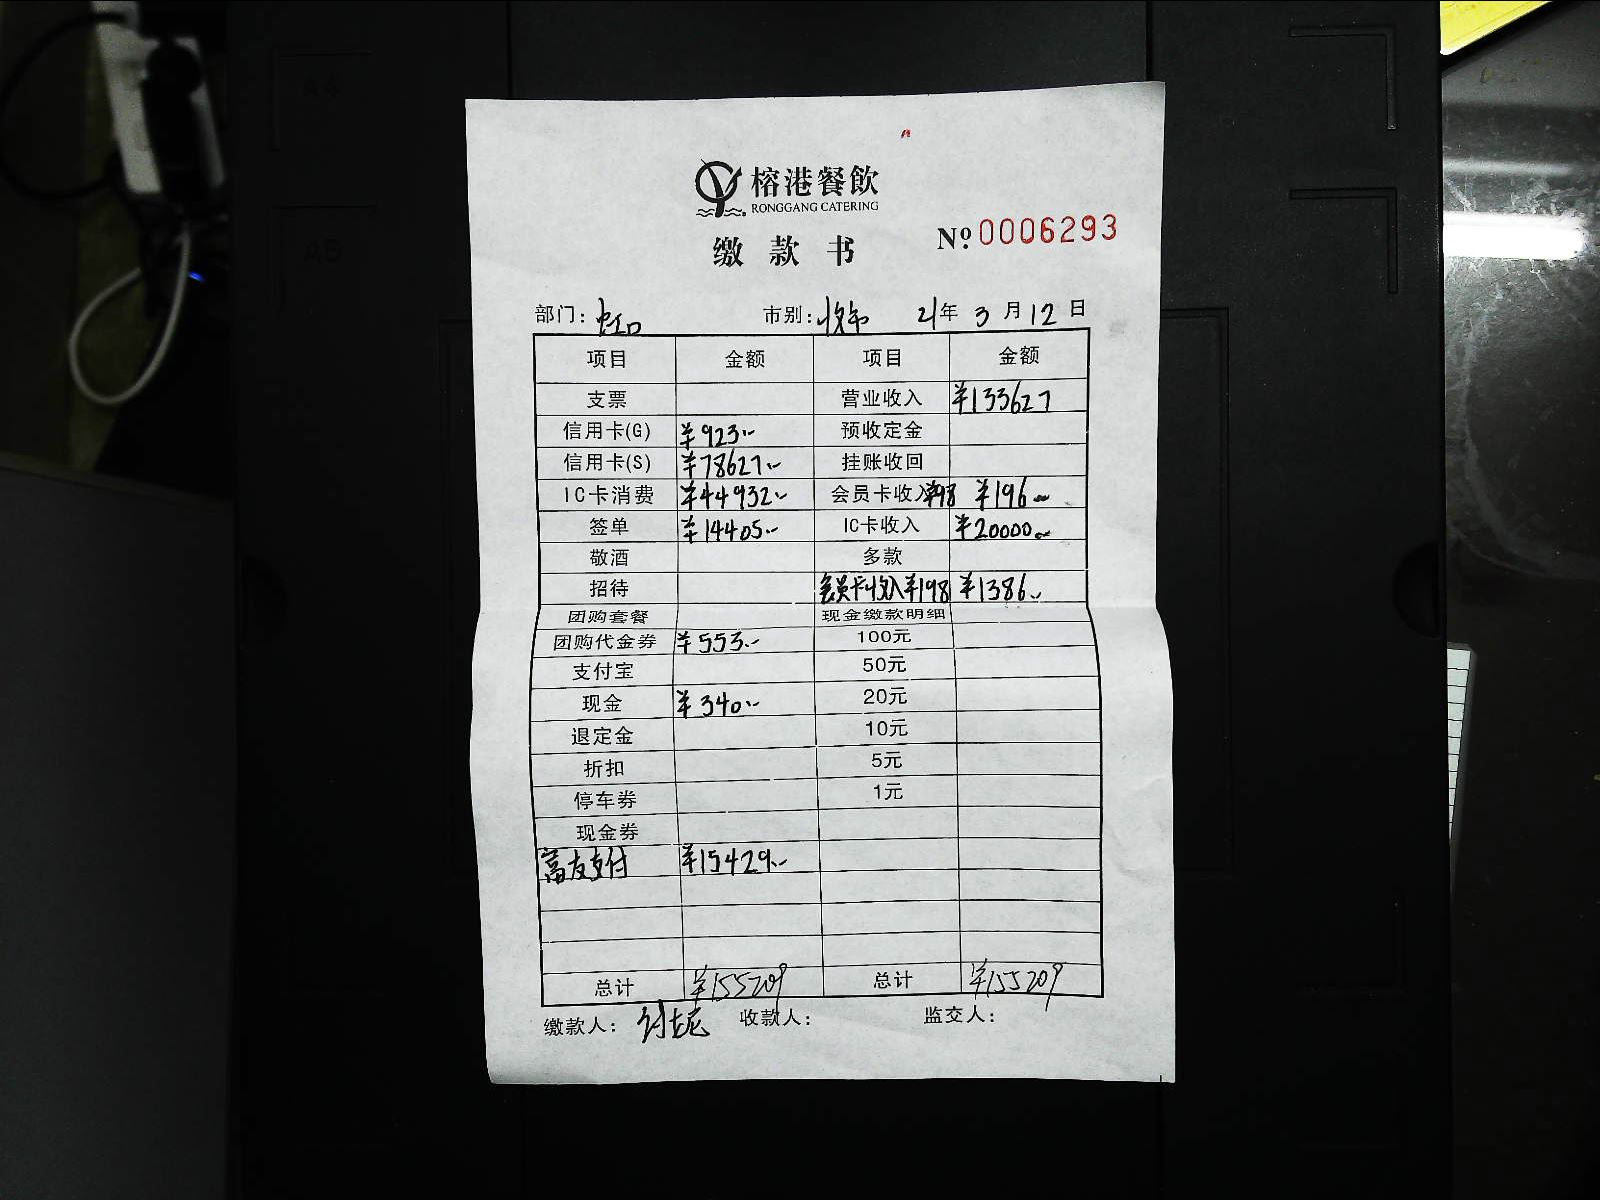 榕港餐飲
RONGGANG CATERING
缴款书 Nº 0006293
部门：虹口 市别：收市 21年 3月 12日
项目 金额 项目 金额
支票 营业收入 ¥133627
信用卡(G) ¥923.- 预收定金
信用卡(S) ¥78627.- 挂账收回
IC卡消费 ¥44932.- 会员卡收入¥98 ¥196.00
签单 ¥14405.- IC卡收入 ¥20000.00
敬酒 多款
招待 会员卡收入¥198 ¥1386.-
团购套餐 现金缴款明细
团购代金券 ¥553.- 100元
支付宝 50元
现金 ¥340.- 20元
退定金 10元
折扣 5元
停车券 1元
现金券
富友支付 ¥15429.-
总计 ¥155209 总计 ¥155209
缴款人： 收款人： 监交人：
A4
A5